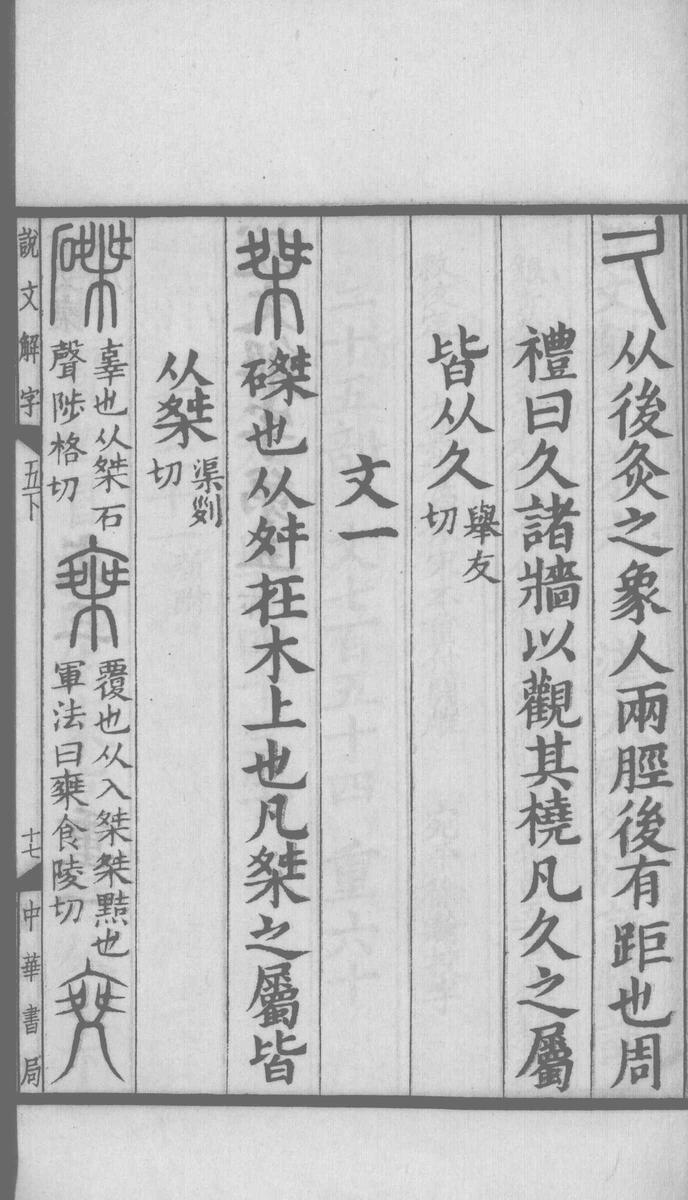 久从後灸之象人兩脛後有距也周
禮曰久諸牆以觀其橈凡久之屬
皆从久舉友切
文一
桀磔也从舛在木上也凡桀之屬皆
从桀渠列切
磔辜也从桀石聲陟格切椉覆也从入桀桀黠也軍法曰椉食陵切
說文解字 五下 十七 中華書局